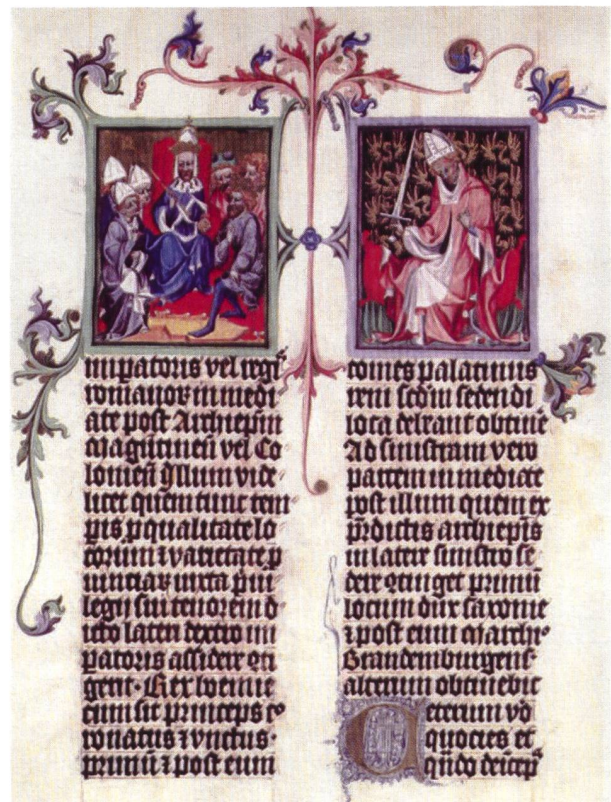 imꝑatoris vel regꝭ
romanoꝝ inmedi
ate post Archiepm̄
magūtineū vel Co
lonien̄ Illum vide
licet quem tunc tem
pis ꝓ qualitate lo
corum ⁊ varietate ꝓ
uinciaꝝ iuxta pͥui
legij sui tenorem d
icto latere dextro im
ꝑatoris assidere ↄti
gerit · Rex boemie
cum sit princeps co
ronatus ⁊ vnctus ·
primū ⁊ post eum
comes palatinus
reni scd̄m sedendi
loca debeant obtinē
Ad sinistram vero
partem inmediate
post illum quem ex
p̄dictis archiep̄is
in latere sinistro se
dere ↄtinget primū
locum dux saxonie
⁊ post eum marchi°
Brandemburgenẜ
alterum obtinebit
Ceterum vo
quocies et
qn̄do deīcepˢ